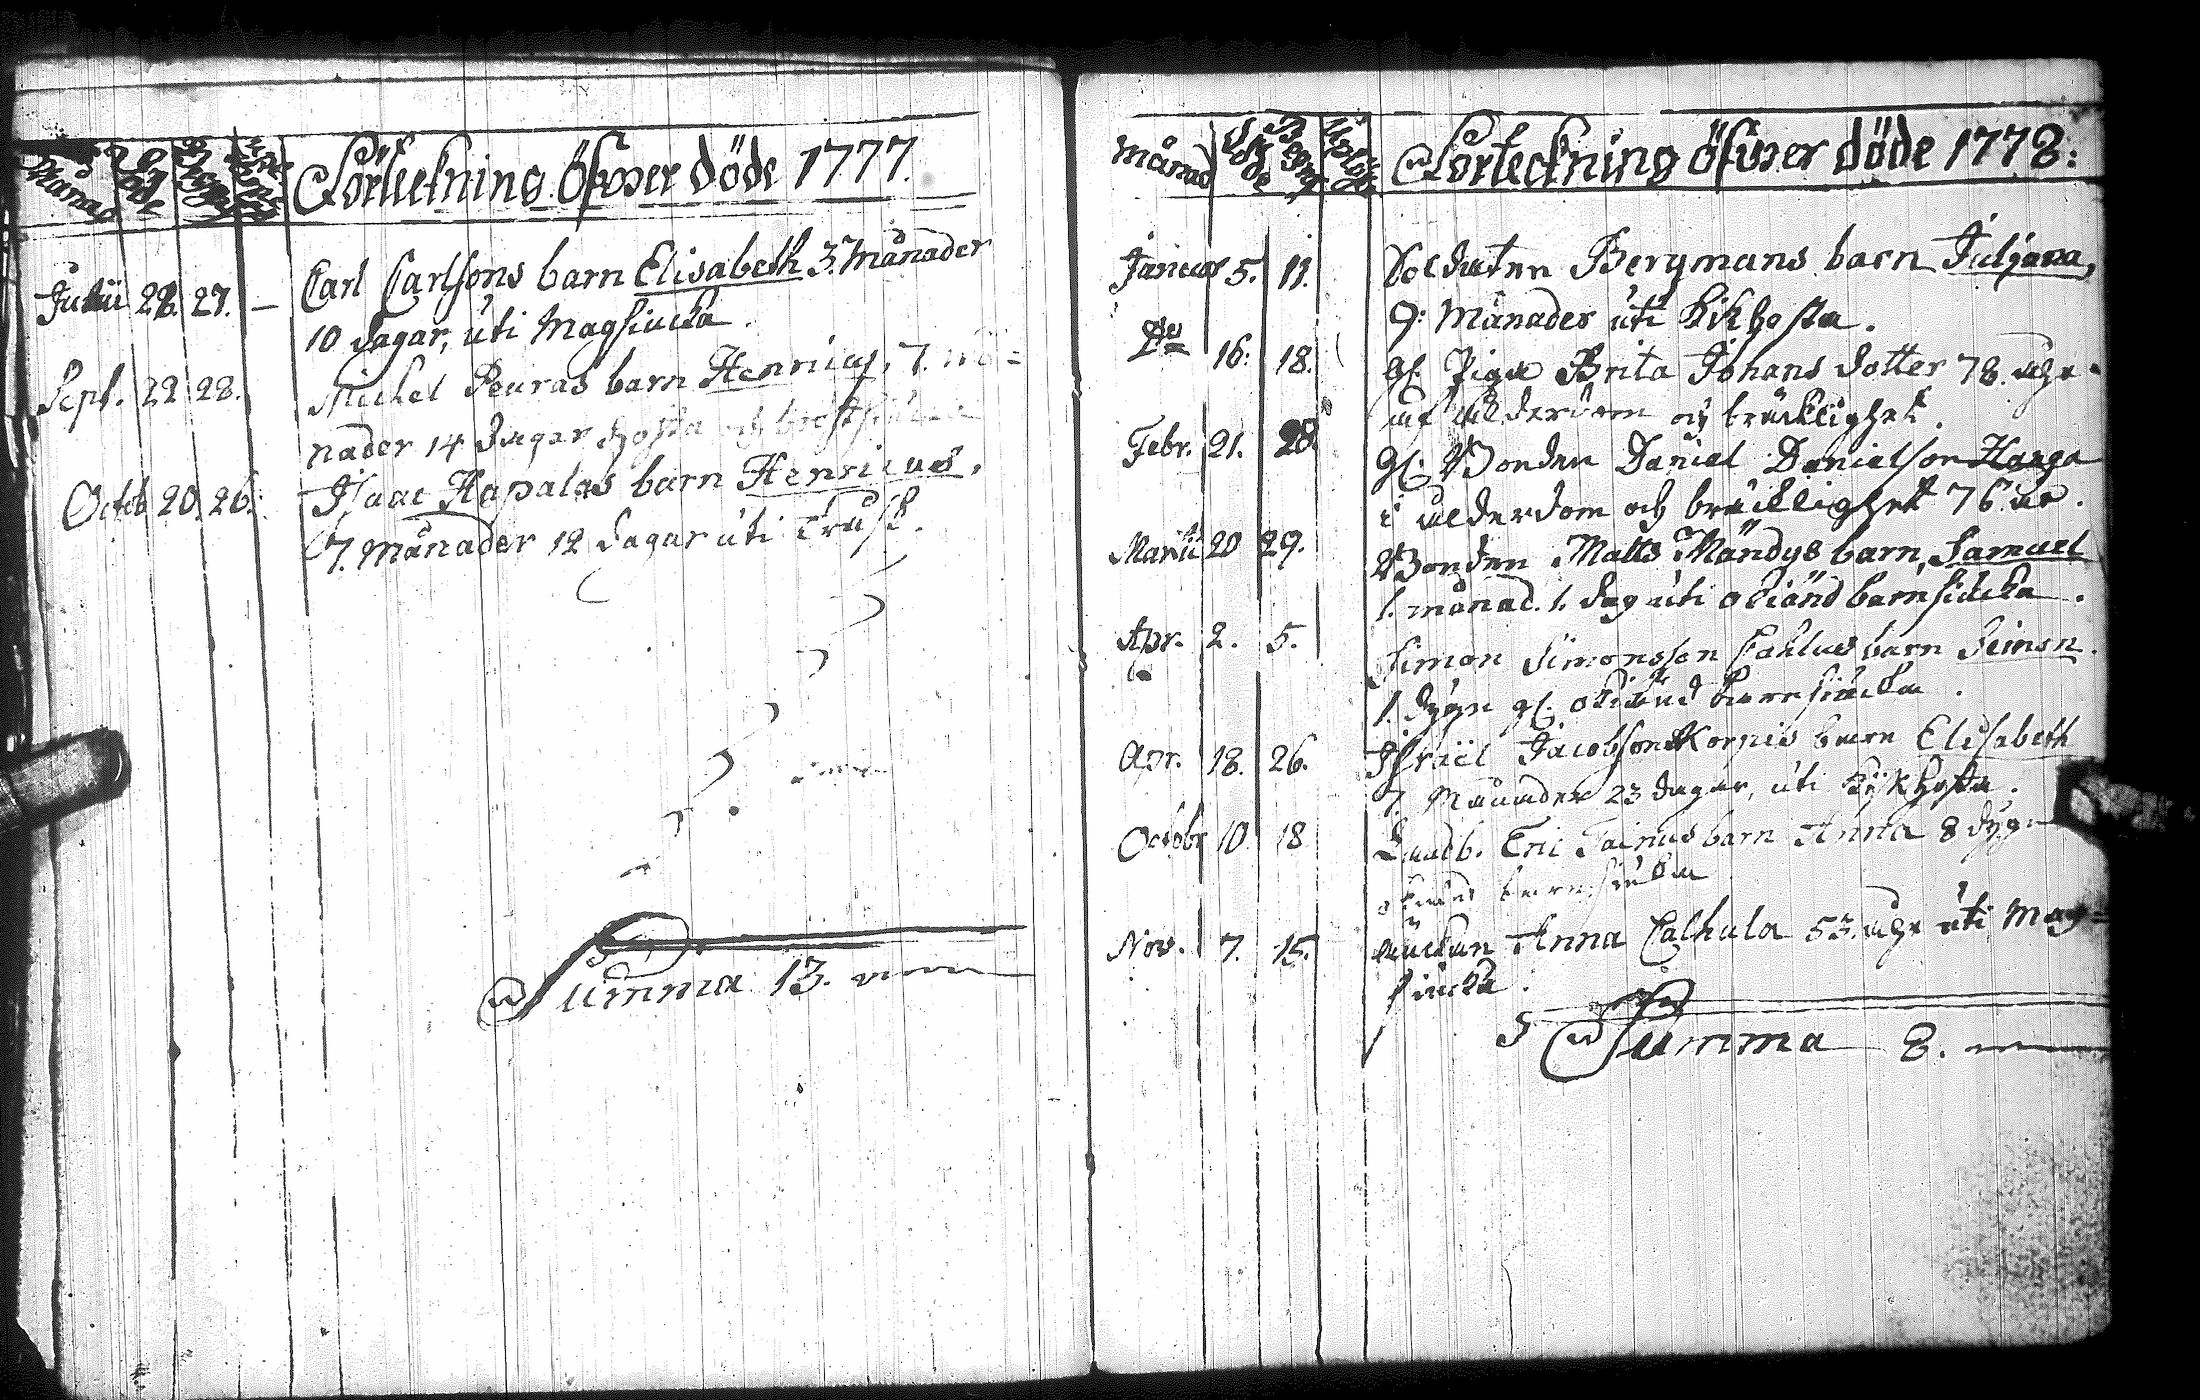 Månad
Döde
Förteckning öfwer döde 1777.
Julii 28. 27. — Carl Carlsons barn Elisabeth 3. Månader
10 dagar, uti Magsiucka.
Sept. 22 28. Michel Peuras barn Henricus, 7. må=
nader 14 dagar hosta och bröstsiucka
Octob 20. 26. Isaac Hapalas barn Henricus,
7. månader 12 dagar uti Trusk.
Summa 13.
Månad
Döde
Förteckning öfwer döde 1778:
Januar 5. 11. Soldaten Bergmans barn Juljana,
9: Månader uti Kikhosta.
Do 16. 18. gl. Pigu Brita Johans dotter 78. åhr
af ålderdom och bräcklighet.
Febr. 21. 28 gl. Bonden Daniel Danielson Hanga
i ålderdom och bräcklighet 76 år.
Martii 20 29. Bonden Matts Mändys barn, Samuel
1. månad. 1. dag uti okiänd barnsiucka.
Apr. 2. 5. Simon Simonsson barn Simon.
1. dygn gl. okiänd barnsiucka.
Apr. 18. 26. Israël Jacobson Korpis barn Elisabeth
7. Månader 23 dagar, uti Kijkhosta.
Octobr 10. 18 Landb. Eric Tainus barn Anna 8 dygn
okiänd barnsiucka
Nov. 7. 15. Änckan Anna Calhula 53. åhr uti Mag=
siucka.
Summa 8.